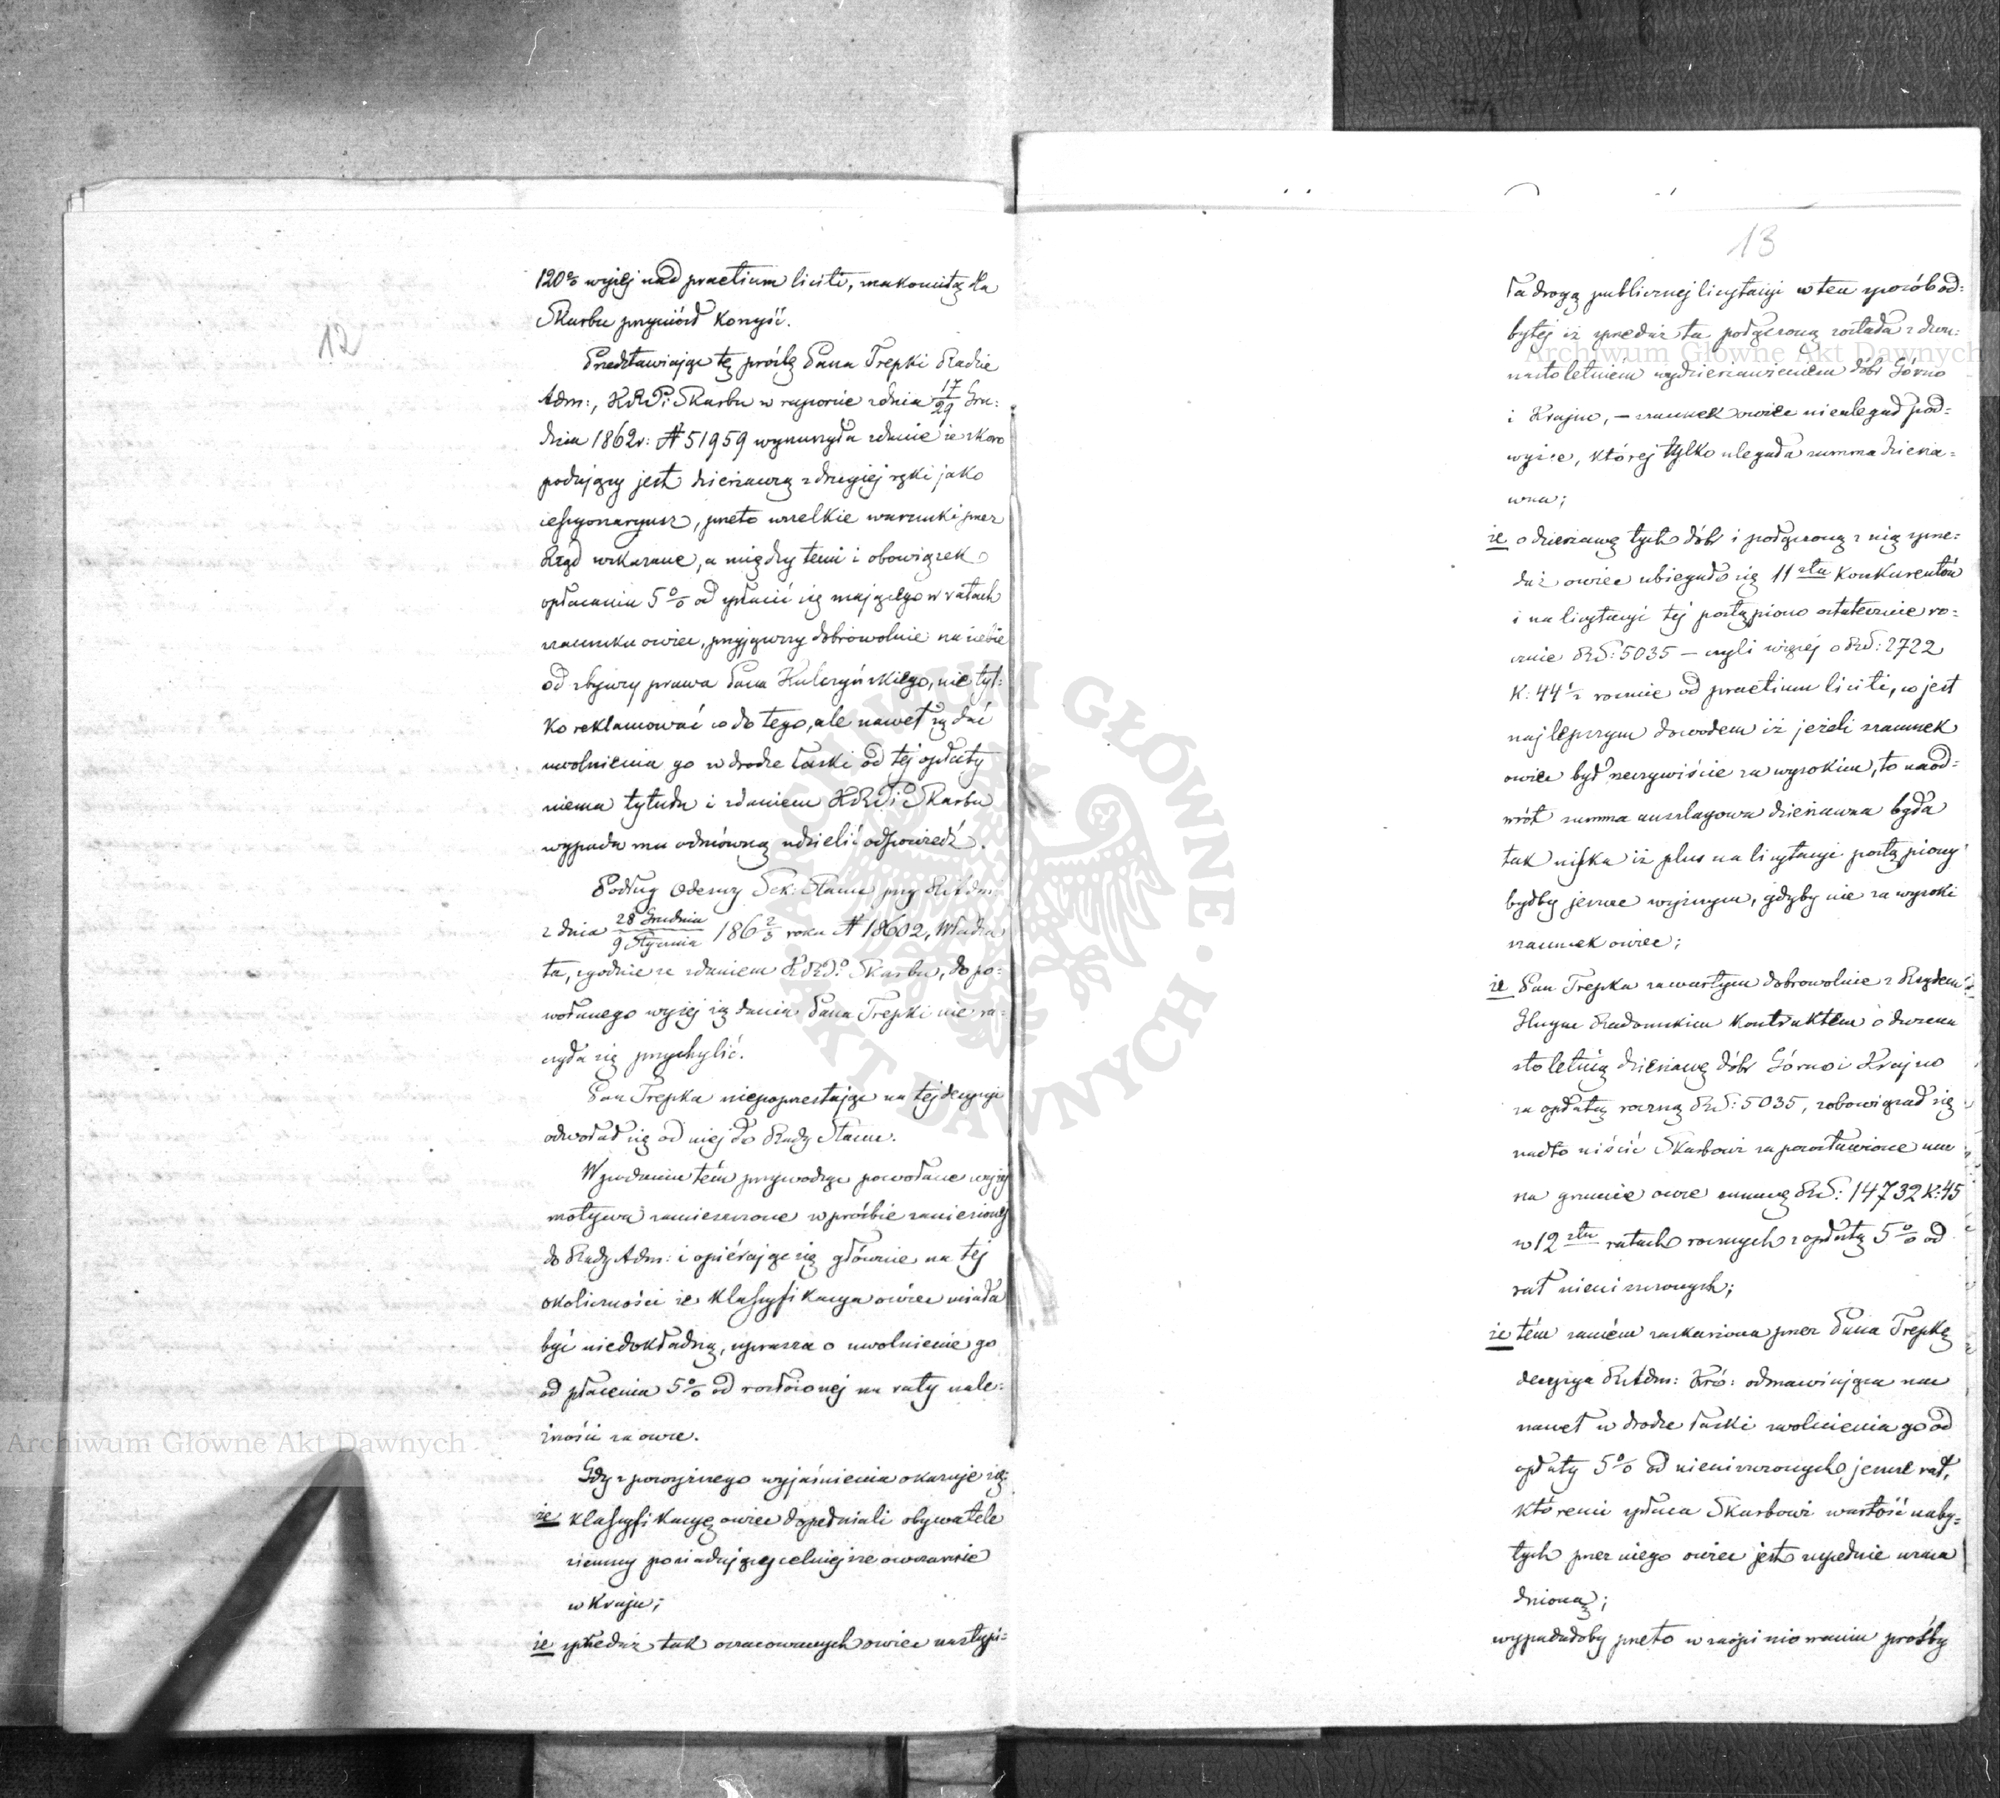 12
120% wyżej nad praetium liciti, znakomitą dla
Skarbu przyniósł korzyść.
Przedstawiając tę prośbę Pana Trepki Radzie
Adm:, KRPi Skarbu w raporcie z dnia 17/29 Gru:
dnia 1862 r: № 51959 wynurzyła zdanie że skoro
podający jest dzierżawcą z drugiej ręki jako
cessyonaryusz, przeto wszelkie warunki przez
Rząd wskazane, a między temi i obowiązek
opłacania 5% od spłacić się mającego w ratach
szacunku owiec, przyjąwszy dobrowolnie na siebie
od zbywcy prawa Pana Kulczyńskiego, nie tyl:
ko reklamować co do tego, ale nawet żądać
uwolnienia go w drodze łaski od tej opłaty
niema tytułu i zdaniem KRPi Skarbu
wypada mu odmówną udzielić odpowiedź.
Podług Odezwy Sek: Stanu przy Radzie
z dnia 28 Grudnia/9 Stycznia 186 2/3 roku № 18602, Władza
ta, zgodnie ze zdaniem KRPo Skarbu, do po:
wołanego wyżej żądania Pana Trepki nie ra:
czyła się przychylić.
Pan Trepka niepoprzestając na tej decyzyi
odwołał się od niej do Rady Stanu.
W podaniu tém przywodząc powołane wyżej
motywa zamieszczone w prośbie zaniesionej
do Rady Adm: i opiérając się głównie na tej
okoliczności że klassyfikacya owiec miała
być niedokładną, uprasza o uwolnienie go
od płacenia 5% od rozłożonej na raty nale:
żności za owce.
Gdy z powyższego wyjaśnienia okazuje się:
że klassyfikacyę owiec dopełniali obywatele
ziemscy posiadający celniejsze owczarnie
w kraju;
że sprzedaż tak oszacowanych owiec nastąpi=
13
ła drogą publicznej licytacyi w ten sposób od:
bytej iż sprzedaż ta połączoną została z dwu:
nastoletniém wydzierżawieniem dóbr Górno
i Krajno, – szacunek owiec nieulegał pod=
wyżce, której tylko ulegała summa dzierża=
wna;
że o dzierżawę tych dóbr i połączoną z nią sprze:
daż owiec ubiegało się 11stu konkurentów
i na licytacyi tej postąpiono ostatecznie ro:
cznie RS: 5035 – czyli więcej o RS: 2722
k: 44½ rocznie od praetium liciti, co jest
najlepszym dowodem iż jeżeli szacunek
owiec był rzeczywiście za wysokim, to naod=
wrót summa anszlagowa dzierżawna była
tak nizka iż plus na licytacyi postąpiony
byłby jeszcze wyższym, gdyby nie za wysoki
szacunek owiec;
że Pan Trepka zawartym dobrowolnie z Rządem
Gbnym Radomskim kontraktem o dwuna
stoletnią dzierżawę dóbr Górno i Krajno
za opłatą roczną RS: 5035, zobowiązał się
nadto uiścić Skarbowi za pozostawione mu
na gruncie owce summę RS: 14732 k: 45
w 12stu ratach rocznych z opłatą 5% od
rat nieuiszczonych;
że tém samém zaskarżona przez Pana Trepkę
decyzya RAdm: Kró: odmawiająca mu
nawet w drodze łaski zwolnienia go od
opłaty 5% od nieuiszczonych jeszcze rat,
któremi spłaca Skarbowi wartość naby=
tych przez niego owiec jest zupełnie uzasa
dnioną;
wypadałoby przeto w zaopiniowaniu prośby